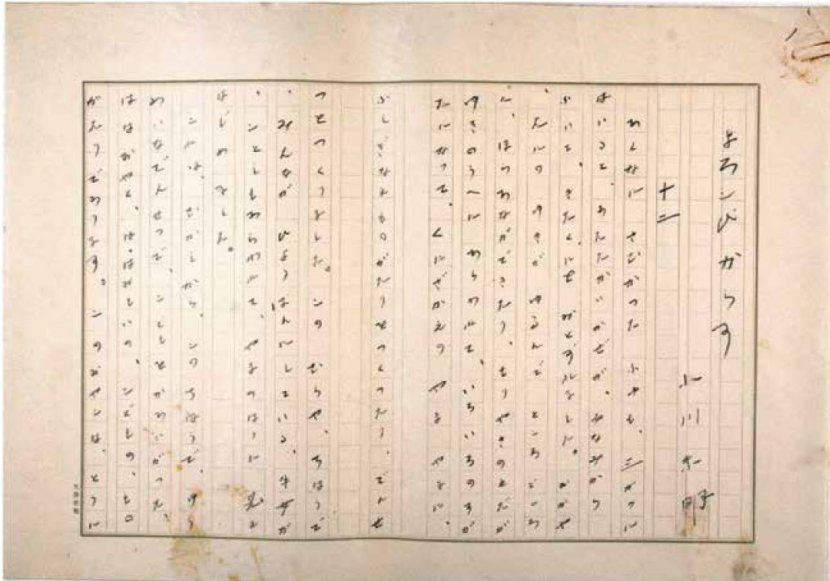 よろこびがらす
小川未明
十二
あんなに さむかった ふゆも、三がつに
はいると あたたかいかぜが、みなみから
ふいて、きたくにを おとずれました。おかや
たにの ゆきが ゆるんで ところどころ
に、ほらあなができ
ゆきのうへに あらわれて、いろいろの
たになって、くにざかえの やま やまに、
ふしぎなものがたりをつくったり、でんせ
つをつくりました。この むらや、ちほうで
、みんなが ひようばんにしている、牛女が
、ことしもあらわれて、やまのほうに 見え
はじめました。
これは、むかしから、このちほうで、ゆう
めいなでんせつで、こどもをかわいがった、
ははおやと、ははおもいの こどもの、もの
がたりであります。このおやこは、とうに